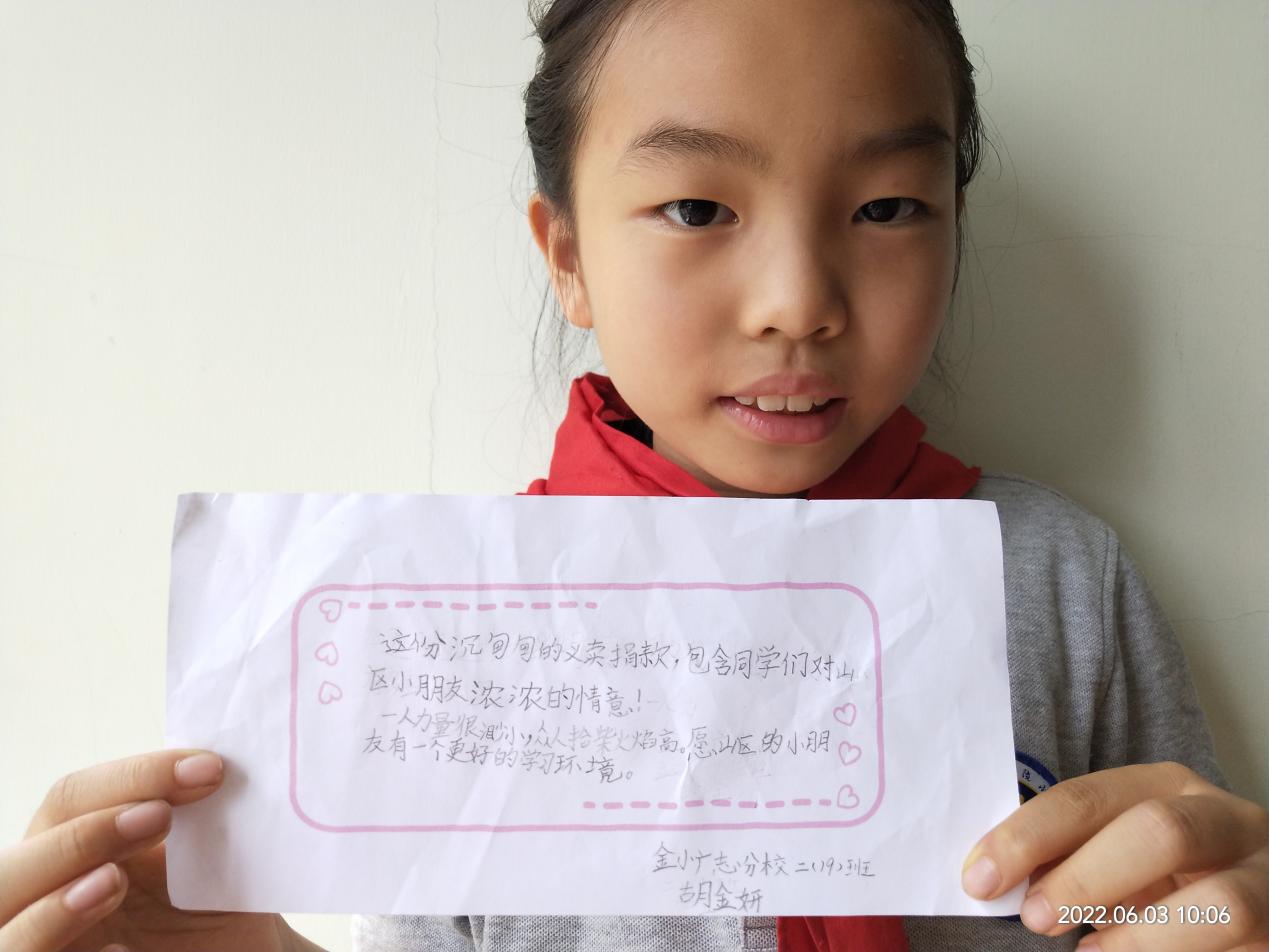 这份沉甸甸的义卖捐款，包含同学们对山
区小朋友浓浓的情意！
一人力量很渺小，众人拾柴火焰高。愿山区的小朋
友有一个更好的学习环境。
金小广志分校二（19）班
胡金妍
2022.06.03 10:06